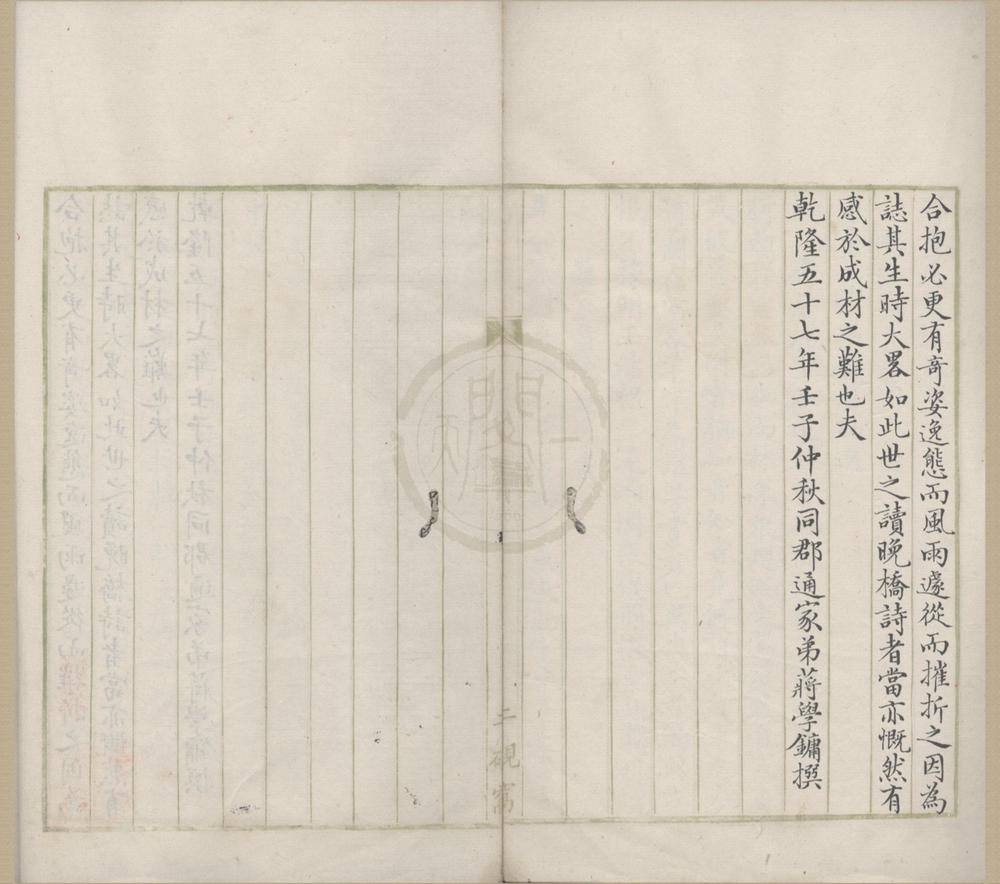 合抱必更有奇姿逸態而風雨遽從而摧折之因為
誌其生時大畧如此世之讀晚橋詩者當亦慨然有
感於成材之難也夫
乾隆五十七年壬子仲秋同郡通家弟蔣學鏞撰
二硯窩